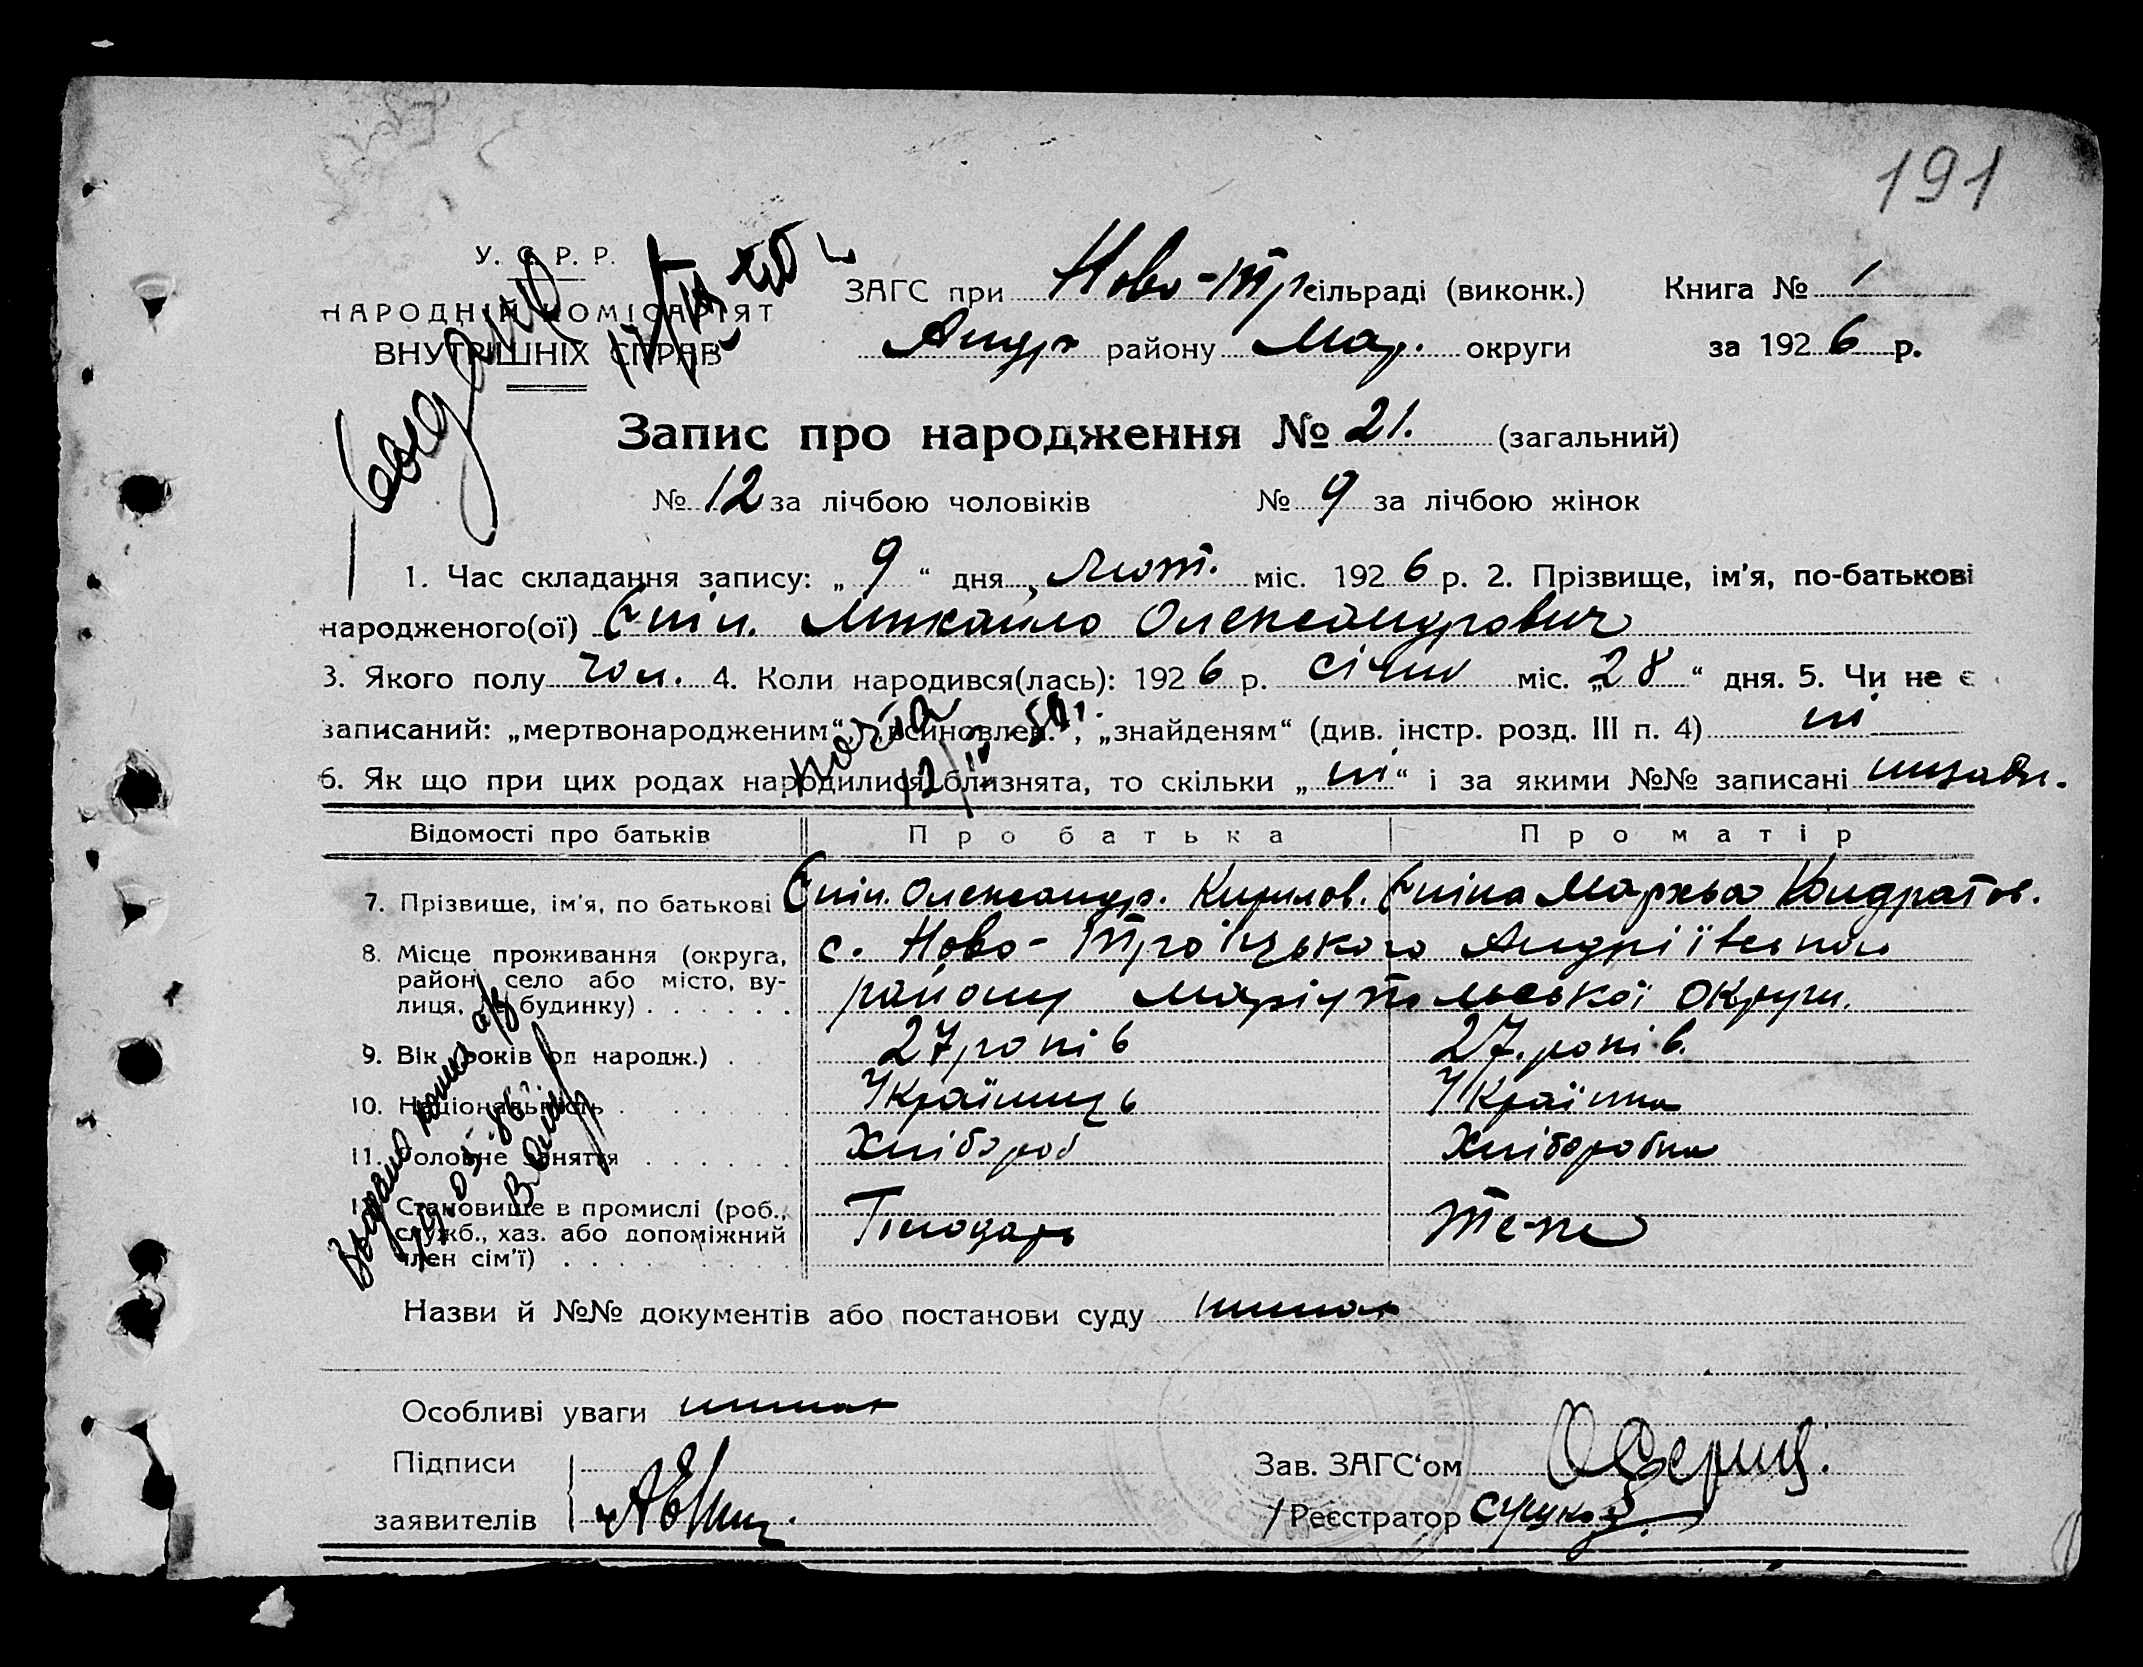 191
У. С. Р. Р.
НАРОДНІЙ КОМІСАРІЯТ
ВНУТРІШНІХ СПРАВ
ЗАГС при Ново-Тр сільраді (виконк.) Книга № 1
Андр району Мар. округи за 1926 р.
Запис про народження № 21. (загальний)
№ 12 за лічбою чоловіків № 9 за лічбою жінок
1. Час складання запису: „ 9 “ дня Лют. міс. 1926 р. 2. Прізвище, ім'я, по-батькові
народженого(ої) Єпін. Михайло Олександрович
3. Якого полу чол. 4. Коли народився(лась): 1926 р. січня міс. „28“ дня. 5. Чи не є
записаний: „мертвонародженим“, „всиновлен.“, „знайденям“ (див. інстр. розд. III п. 4) ні
6. Як що при цих родах народилися близнята, то скільки „ ні “ і за якими №№ записані
Відомості про батьків Про батька Про матір
7. Прізвище, ім'я, по батькові Єпін. Олександр. Кирилов. Єпіна Марья Кондратов.
8. Місце проживання (округа, район, село або місто, вулиця, № будинку) с. Ново-Троїцького Андріївськом
району Маріупольської округи.
9. Вік (років од народж.) 27 років 27. років.
10. Національність Українець Українка
11. Головне заняття Хлібороб Хліборобка
12. Становище в промислі (роб., служб., хаз. або допоміжний член сім'ї) Господарь
Назви й №№ документів або постанови суду немає
Особливі уваги немає
Підписи
заявителів
Зав. ЗАГС'ом
Реєстратор